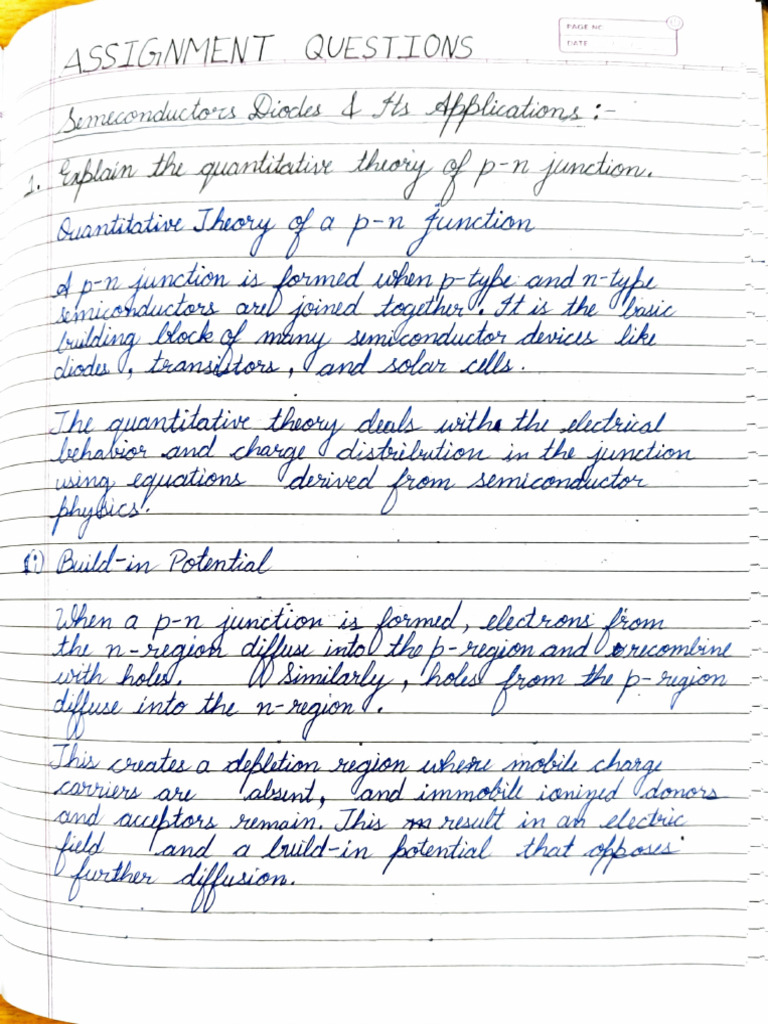 PAGE NO.
DATE
ASSIGNMENT QUESTIONS
Semeconductors Diodes & Its Applications :-
1. Explain the quantitative theory of p-n junction.
Quantitative Theory of a p-n junction
A p-n junction is formed when p-type and n-type
semiconductors are joined together. It is the basic
building block of many semiconductor devices like
diodes, transistors, and solar cells.
The quantitative theory deals with the electrical
behavior and charge distribution in the junction
using equations derived from semiconductor
physics.
(i) Build-in Potential
When a p-n junction is formed, electrons from
the n-region diffuse into the p-region and recombine
with holes. Similarly, holes from the p-region
diffuse into the n-region.
This creates a depletion region where mobile charge
carriers are absent, and immobile ionized donors
and acceptors remain. This result in an electric
field and a build-in potential that opposes
further diffusion.